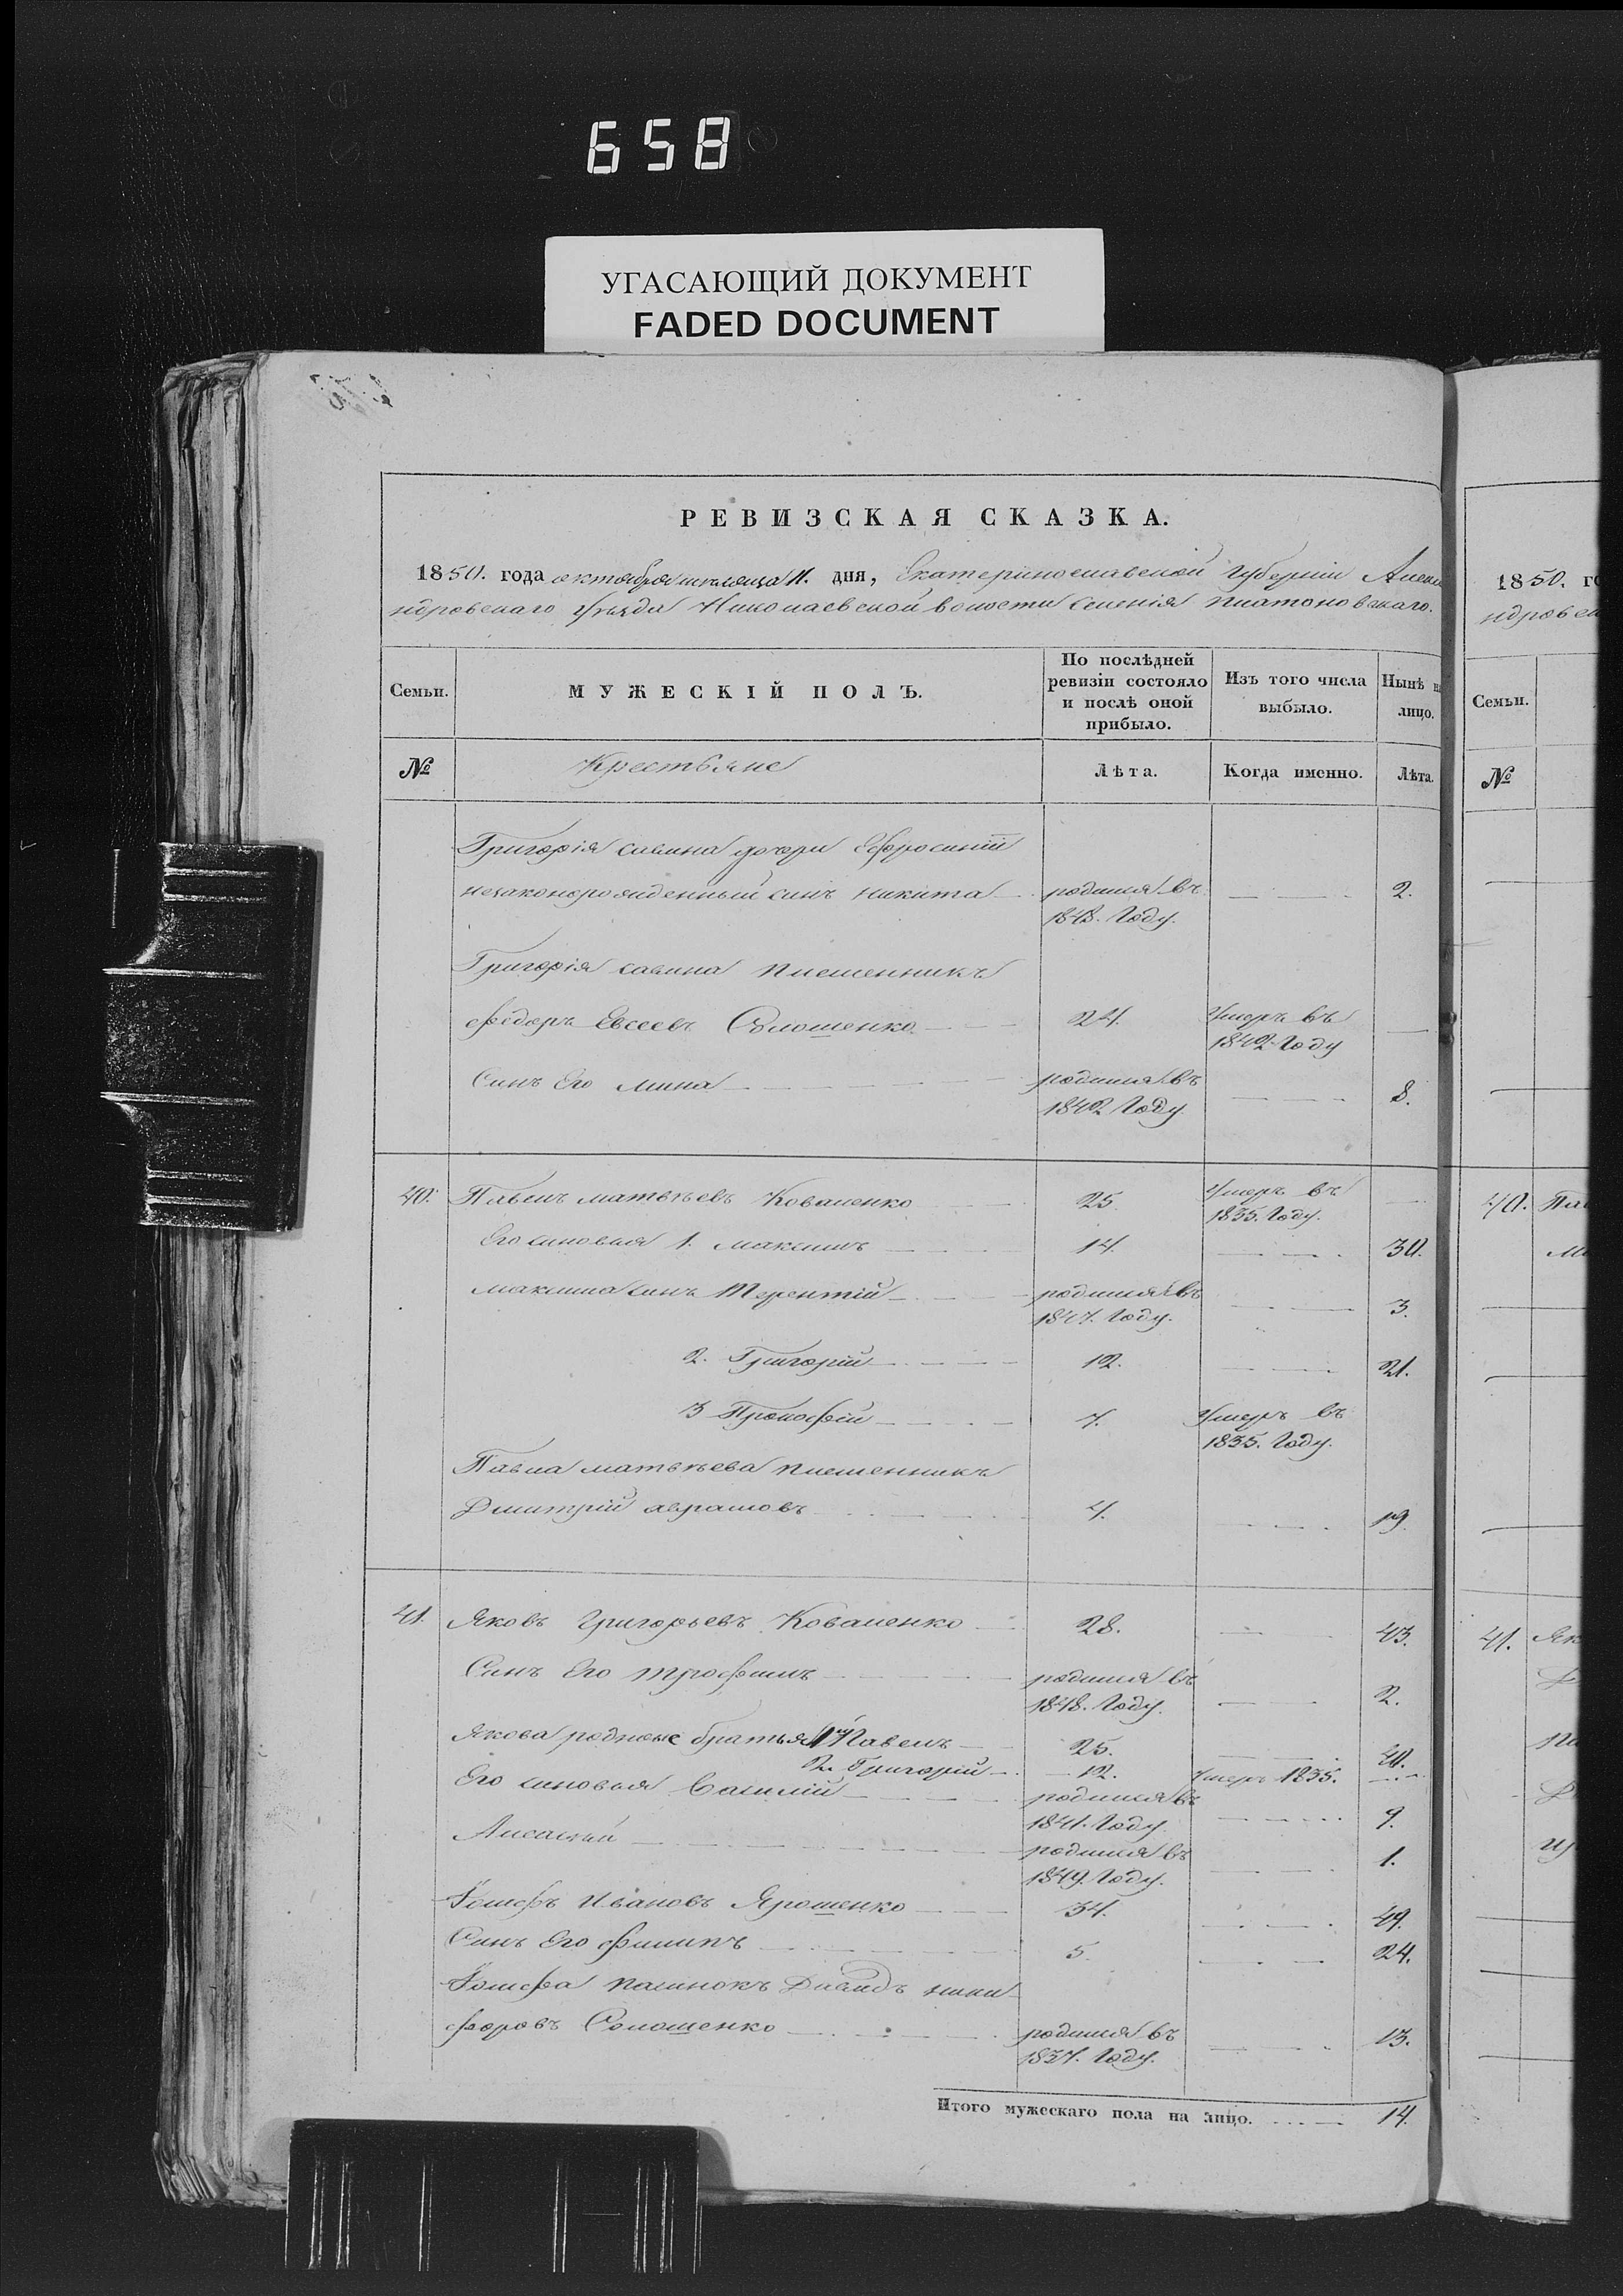 658
УГАСАЮЩИЙ ДОКУМЕНТ
FADED DOCUMENT
РЕВИЗСКАЯ СКАЗКА.
1850. года октября месяца 11. дня, Екатеринославской Губернии Алекса
ндровскаго Уѣзда Николаевской волости селенія Платоновскаго.
Семьи.
МУЖЕСКІЙ ПОЛЪ.
По послѣдней ревизіи состояло и послѣ оной прибыло.
Изъ того числа выбыло.
Нынѣ на лицо.
№
Крестьяне
Лѣта.
Когда именно.
Лѣта.
Григорія савина дочери Ефросиніи
незаконорожденный синъ никита родился въ 2.
1848. Году.
Григорія савина племенникъ
федоръ Евсеевъ Солошенко 24. Умеръ въ
1842 Году
Синъ Его мина родился въ 8.
1842 Году
40. Павелъ матвѣевъ Коваленко 25 Умеръ въ
1835. Году.
Его синовья 1. максимъ 14. 30.
максима синъ Терентій родился въ 3.
1847. Году.
2. Григорій 12. 21.
3 Прокофій 7. Умеръ въ
1835. Году.
Павла матвѣева племенникъ
Дмитрій аврамовъ 4. 19.
41. Яковъ Григорьевъ Коваленко 28. 43.
Синъ Его трофимъ родился въ 2.
1848. Году.
Якова родные братья 1й Павелъ 25. 40.
2. Григорій 12. Умеръ 1835.
Его синовья Василій родился въ 9.
1841. Году.
Алексѣй родился въ 1.
1849. Году.
Іосифъ Ивановъ Ярошенко 34. 49.
Синъ Его филипъ 5. 24.
Іосифа пасинокъ Давидъ ники
форовъ Солошенко родился въ 13.
1837. Году.
Итого мужескаго пола на лицо. 14.
1850. го
ндровск
Семьи.
№
40. Пав
ма
41. Як
Па